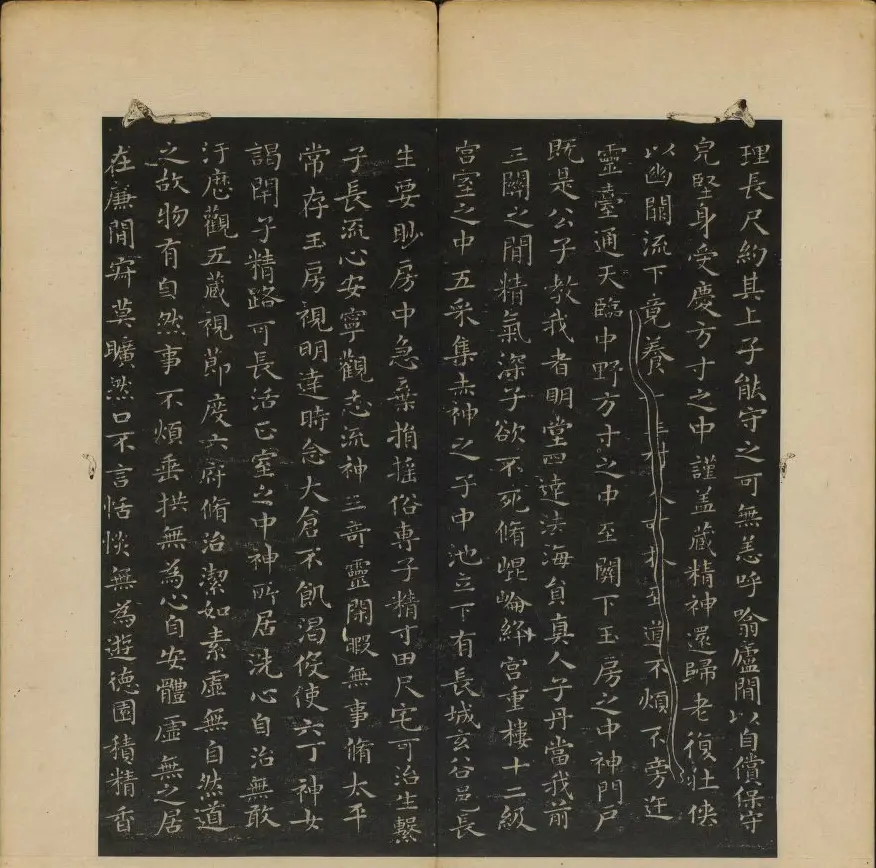 理長尺約其上子能守之可無恙呼噏廬間以自償保守
皃堅身受慶方寸之中謹盖藏精神還歸老復壮俠
以幽闕流下竟養道不煩不旁迕
靈臺通天臨中野方寸之中至闕下玉房之中神門戶
既是公子教我者明堂四達法海貟真人子丹當我前
三關之間精氣深子欲不死脩崐崘絳宮重樓十二級
宮室之中五采集赤神之子中池立下有長城玄谷邑長
生要眇房中急棄捐搖俗專子精寸田尺宅可治生繫
子長流心安寧觀志流神三奇靈閑暇無事脩太平
常存玉房視明達時念大倉不飢渴役使六丁神女
謁閇子精路可長活正室之中神所居洗心自治無敢
汙歷觀五藏視節度六府脩治潔如素虛無自然道
之故物有自然事不煩垂拱無為心自安體虛無之居
在廉間寂莫曠然口不言恬惔無為遊德園積精香